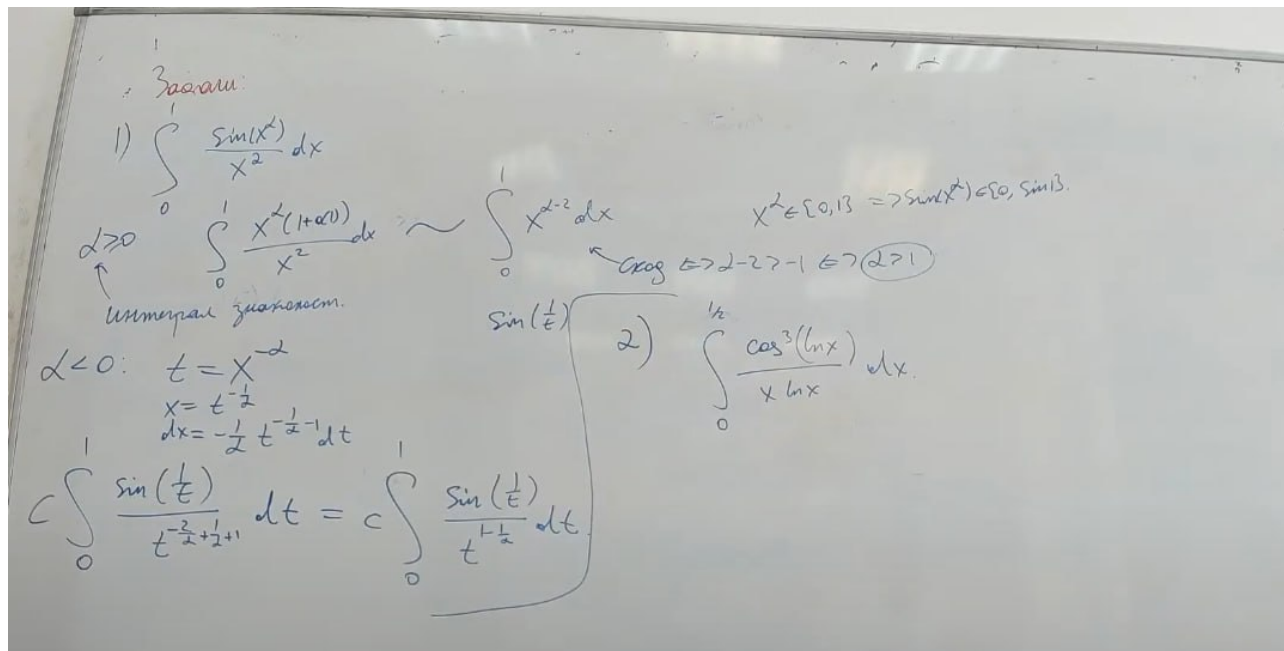 Задачи:
1) ∫₀¹ sin(x^α)/x² dx
α≥0 ∫₀¹ x^α(1+o(1))/x² dx ~ ∫₀¹ x^(α-2) dx
x^α ∈ [0,1] => sin(x^α) ∈ [0, sin1].
сход <=> α-2>-1 <=> α>1
интеграл знакопост.
α<0: t = x^(-α)
x = t^(-1/α)
dx = -1/α t^(-1/α-1) dt
sin(1/t)
c ∫₀¹ sin(1/t)/t^(-2/α+1/α+1) dt = c ∫₀¹ sin(1/t)/t^(1-1/α) dt
2) ∫₀^(1/2) cos³(ln x)/(x ln x) dx.